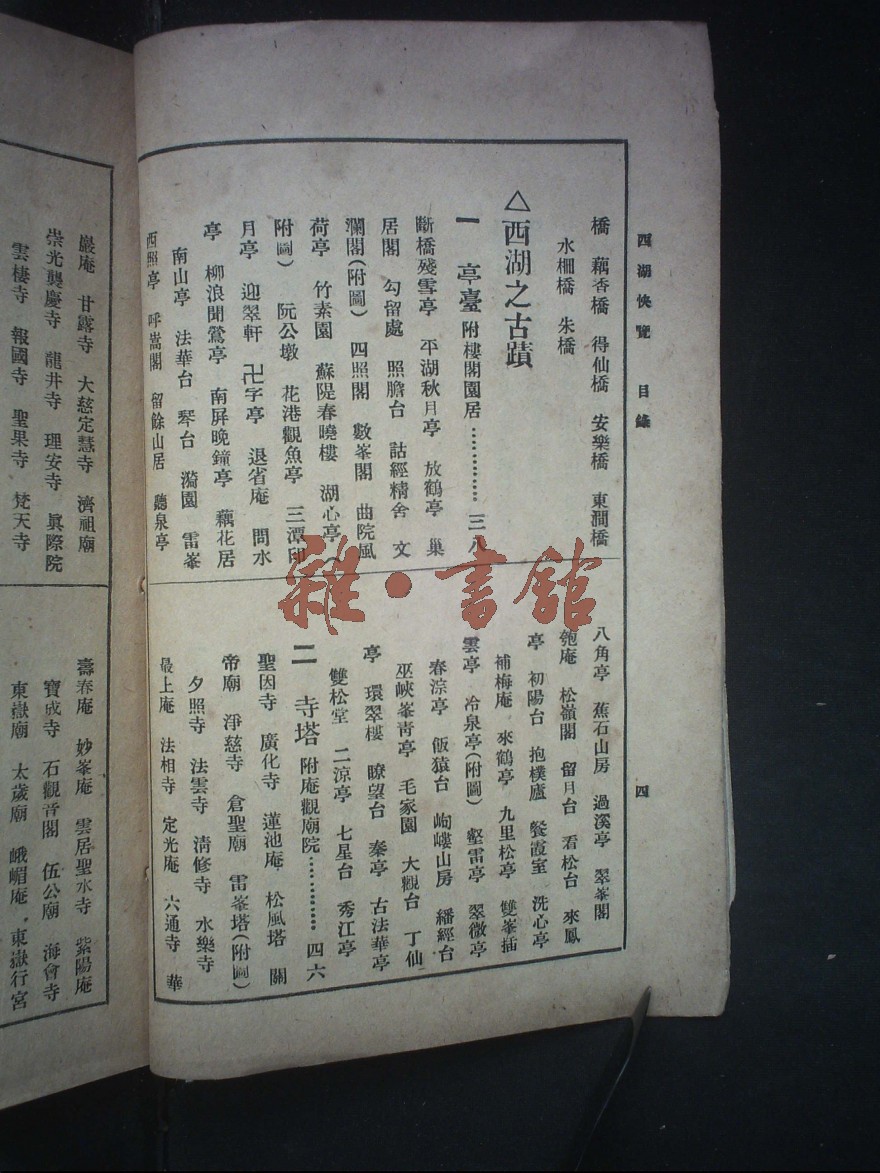 西湖快覽　目錄
四
橋　藕香橋　得仙橋　安樂橋　東澗橋
水柵橋　朱橋
△西湖之古蹟
一　亭臺附樓閣園居…………三八
斷橋殘雪亭　平湖秋月亭　放鶴亭　巢
居閣　勾留處　照膽台　詁經精舍　文
瀾閣(附圖)　四照閣　數峯閣　曲院風
荷亭　竹素園　蘇隄春曉樓　湖心亭
附圖)　阮公墩　花港觀魚亭　三潭印
月亭　迎翠軒　卍字亭　退省庵　問水
亭　柳浪聞鶯亭　南屏晚鐘亭　藕花居
南山亭　法華台　琴台　漪園　雷峯
西照亭　呼嵩閣　留餘山居　聽泉亭
八角亭　蕉石山房　過溪亭　翠峯閣
匏庵　松嶺閣　留月台　看松台　來鳳
亭　初陽台　抱樸廬　餐霞室　洗心亭
補梅庵　來鶴亭　九里松亭　雙峯插
雲亭　冷泉亭(附圖)　壑雷亭　翠微亭
春淙亭　飯猿台　岣嶁山房　繙經台
巫峽峯靑亭　毛家園　大觀台　丁仙
亭　環翠樓　瞭望台　秦亭　古法華亭
雙松堂　二涼亭　七星台　秀江亭
二　寺塔附庵觀廟院…………四六
聖因寺　廣化寺　蓮池庵　松風塔　關
帝廟　淨慈寺　倉聖廟　雷峯塔(附圖)
夕照寺　法雲寺　淸修寺　水樂寺
最上庵　法相寺　定光庵　六通寺　華
巖庵　甘露寺　大慈定慧寺　濟祖廟
崇光襲慶寺　龍井寺　理安寺　眞際院
雲棲寺　報國寺　聖果寺　梵天寺
壽春庵　妙峯庵　雲居聖水寺　紫陽庵
寶成寺　石觀音閣　伍公廟　海會寺
東嶽廟　太歲廟　峨嵋庵　東嶽行宮
雜·書館